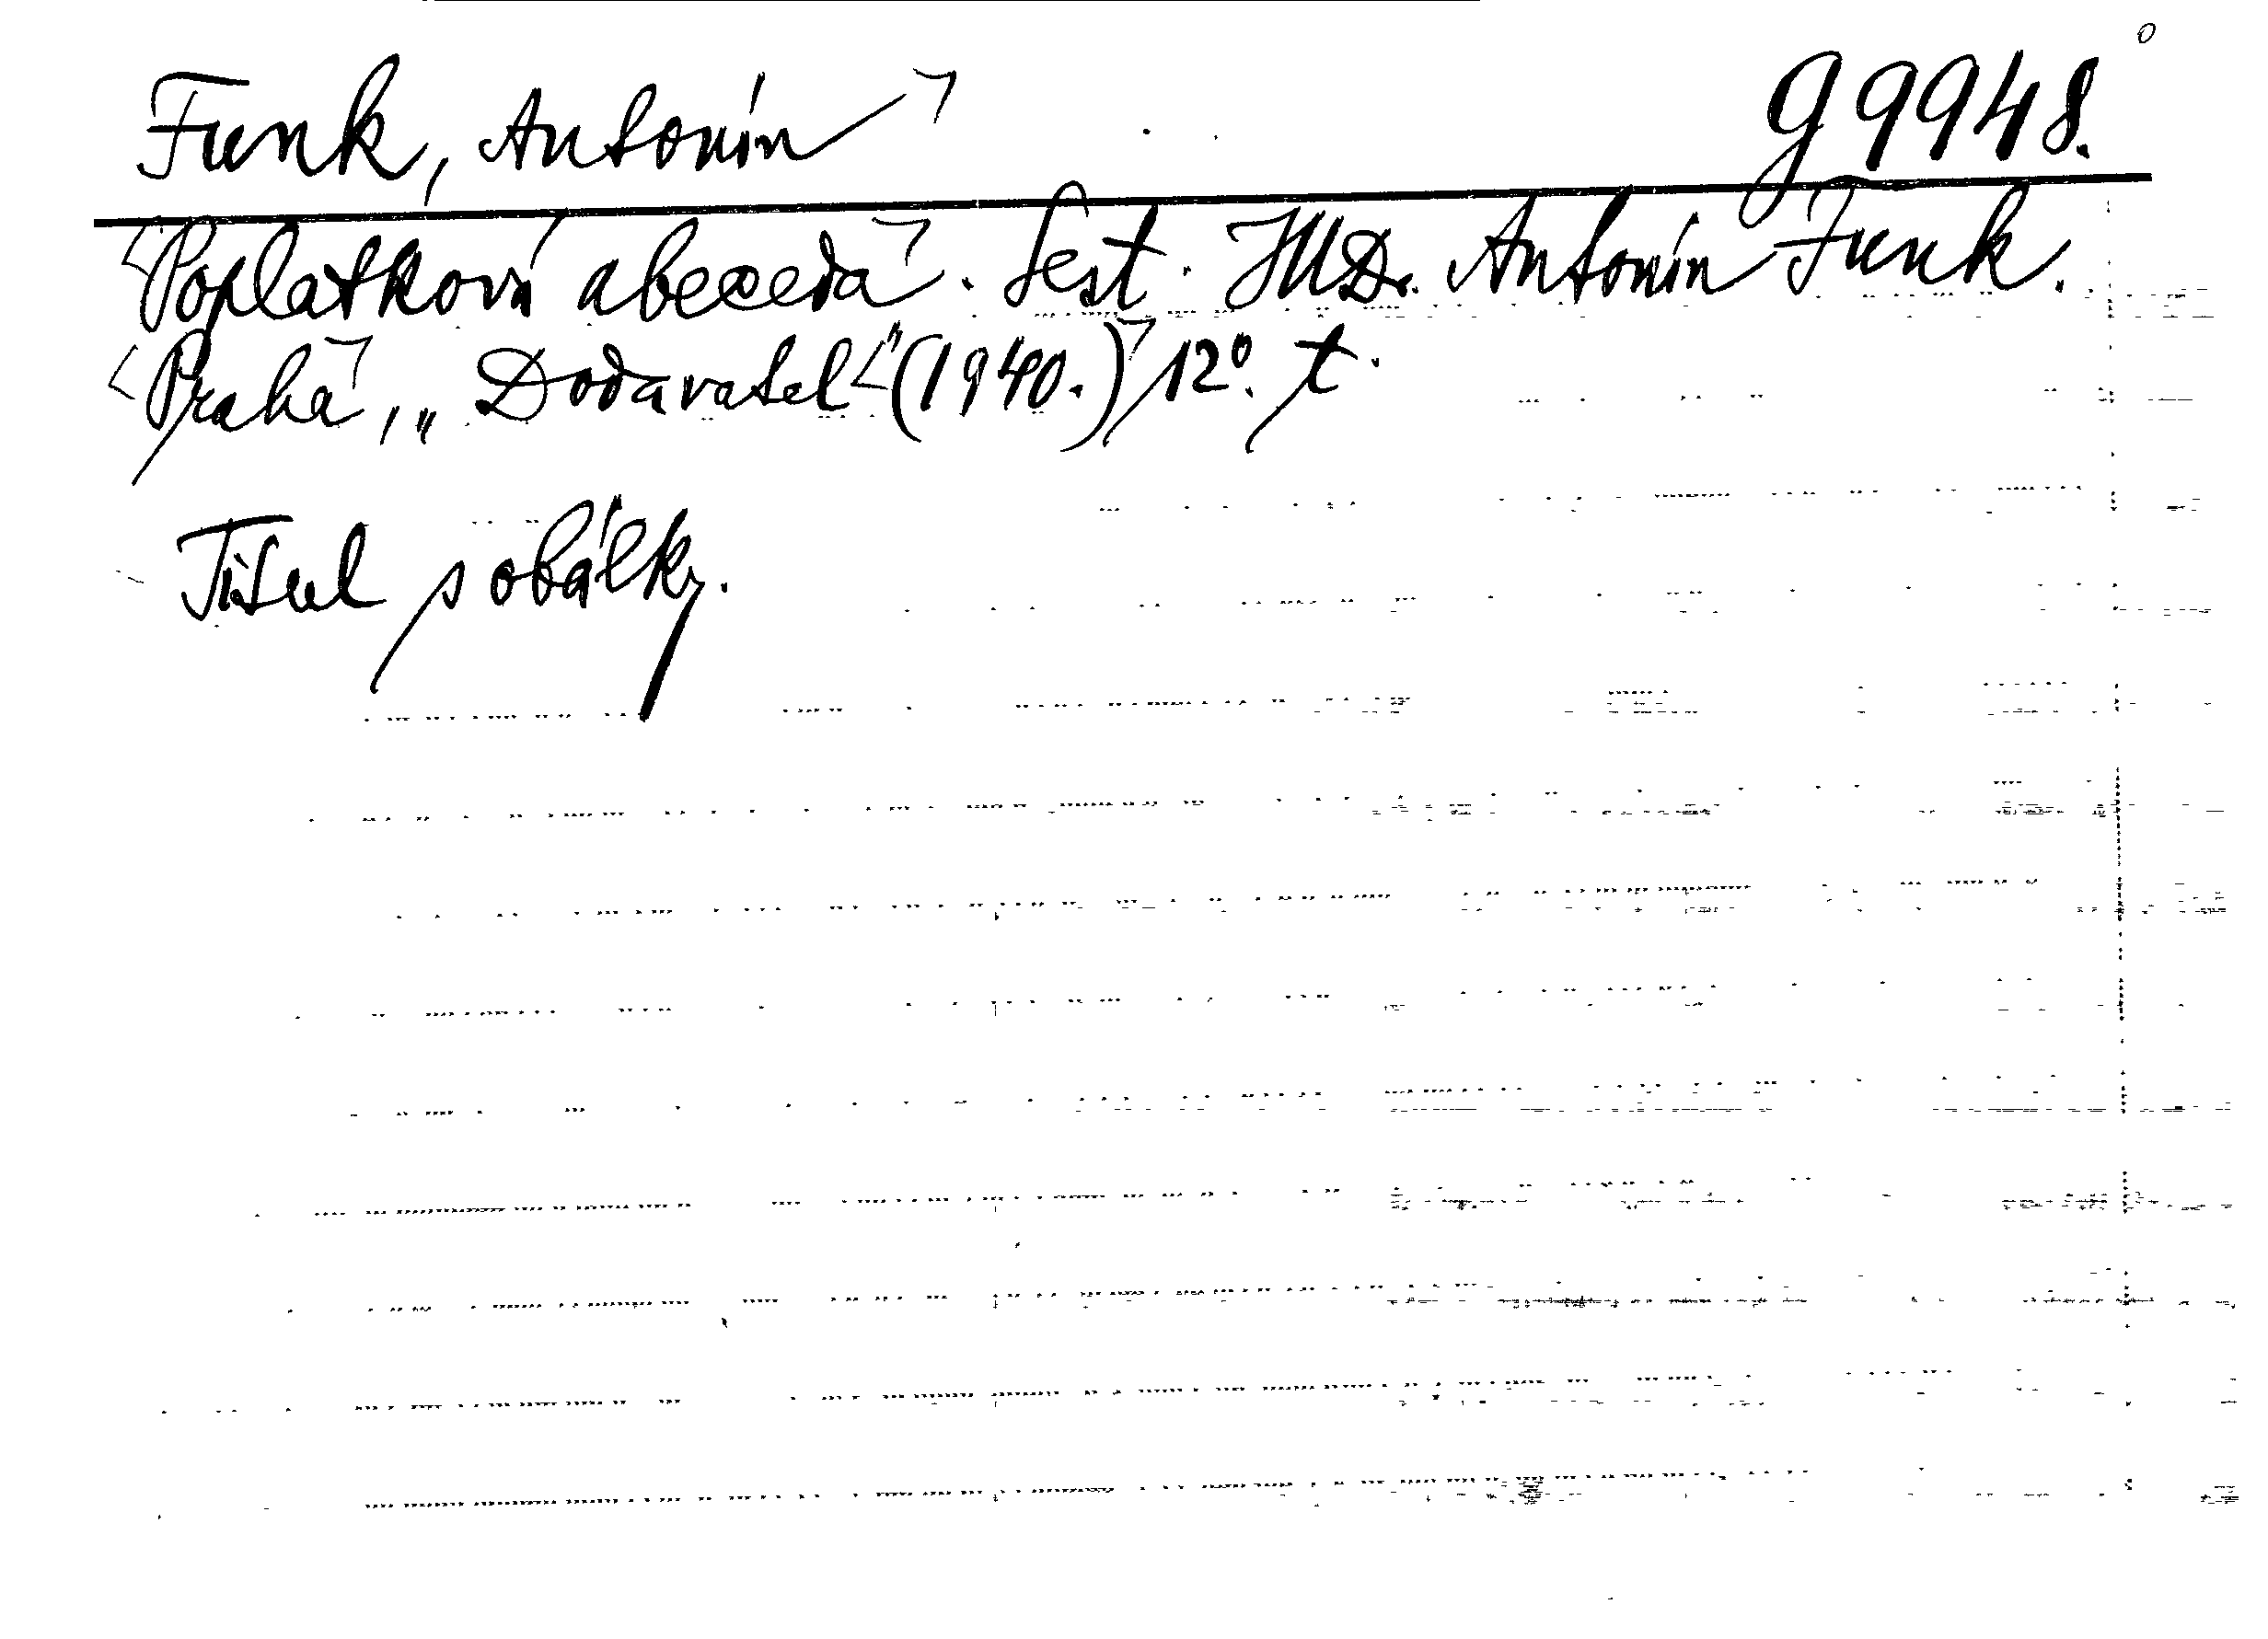 Funk, Antonín g 9948.
Poplatková abeceda. Sest. JUDr. Antonín Funk.
Praha, „Dodavatel“ (1940.) 12°. t.
Titul s obálky.